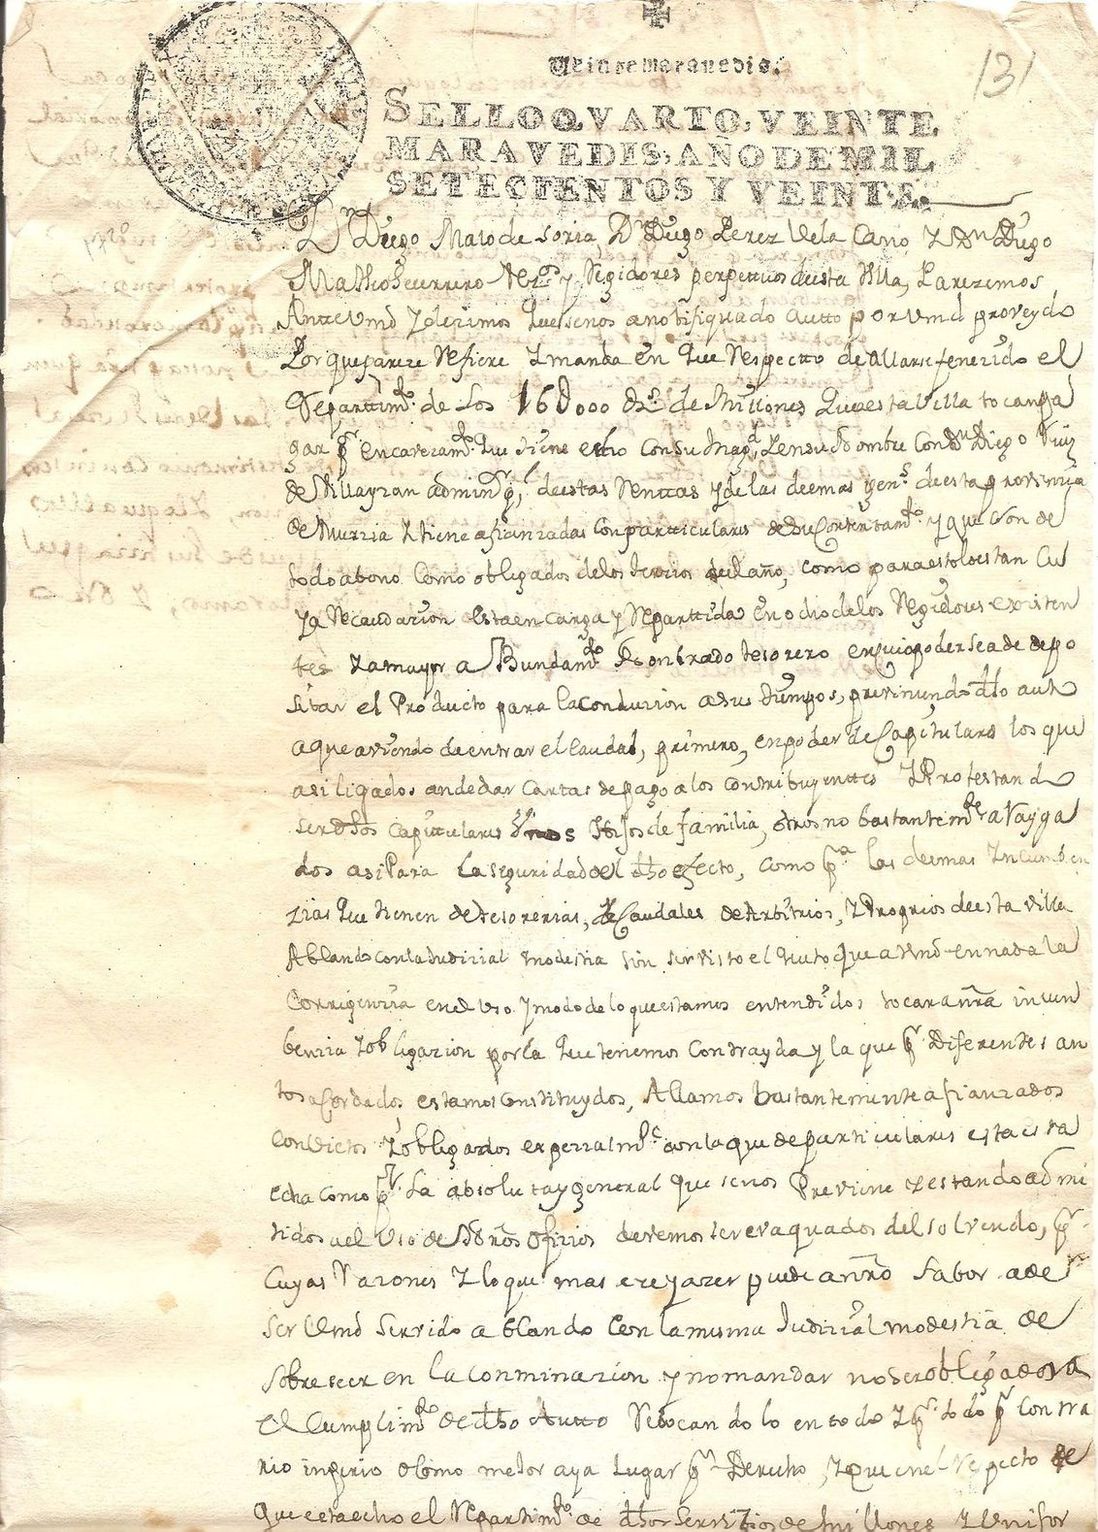 131
Veinte maravedis.
SELLO QVARTO, VEINTE
MARAVEDIS, AÑO DE MIL
SETECIENTOS Y VEINTE.
Dn Diego Mato de Soria Dn Diego Perez Vela Cano Y Dn Diego
Matheo Guerrero Vezos y Regidores perpettuos desta Villa, Parezemos
Antte Vmd y dezimos que senos a notifiquado autto por Vmd proveydo
Por que pareze Refiere Y manda en que Respectto de allarse fenezido el
Repartimto de Los 168000 Rs de Millones que esta Villa toca pa
gar pr encavezamto que tiene echo con su Magd, Y en su Nombre con Dn Diego Ruiz
de Villayzan adminor de estas Renttas y de las deemas Gens de esta provinzia
de Murzia Y tiene afianzadas con partticulares de su Contentamto y que son de
todo abono Como obligados de los terzios del año, como para esto lo estan Cu
ya Recaudazion esta en Carga y Reparttida en ocho de los Regidores existen
tes Y a mayor a Bundamto Nonbrado tesorero en cuio poder sea de depo
sitar el Producto para la conduzion a sus tiempos, previniendo dho autto
a que aviendo de entrar el Caudal, primero, en poder de Capitulares los que
asi ligados an de dar Cartas de pago a los contribuyenttes Y Protestando
ser dhos Capittulares Unos Hijos de familia, otros no bastantemte aRayga
dos asi Para la seguridad del dho efecto, como pa las demas Yncumben
zias que tienen de tesorerias, de Caudales de Arbitrios, Y Proprios de esta villa
Ablando con la Judizial modestia sin ser visto el que a Vmd en nada la
Corrigenzia en el Uso y modo de lo que estamos entendidos tocar a nra incun
benzia Y obligazion por la que tenemos Contrayda y la que pr Diferentes au
tos acordados, estamos constituydos, Allamos bastantemente afianzados
Convictos Y obligados expezialmte con la que de particulares esta esta
echa como pr la absoluta y general que senos Previene Y estando admi
tidos a el Uso de dhos nros ofizios devemos ser evaquados del solviendo, pr
Cuyas Razones Y lo que mas exeyazer puede a nro fabor a de
ser Vmd Servido ablando Con la misma Judizial modestia de
Sobreseer en la conminazion y no mandar no ser obligados a
el Cumplimto de dho Autto Revocandolo en todo Y pr todo pr Contra
rio inperio o como mejor aya lugar pr Derecho, Y que en el Respecto de
que esta echo el Repartimto de dhos Servizios de Millones Y Unifor